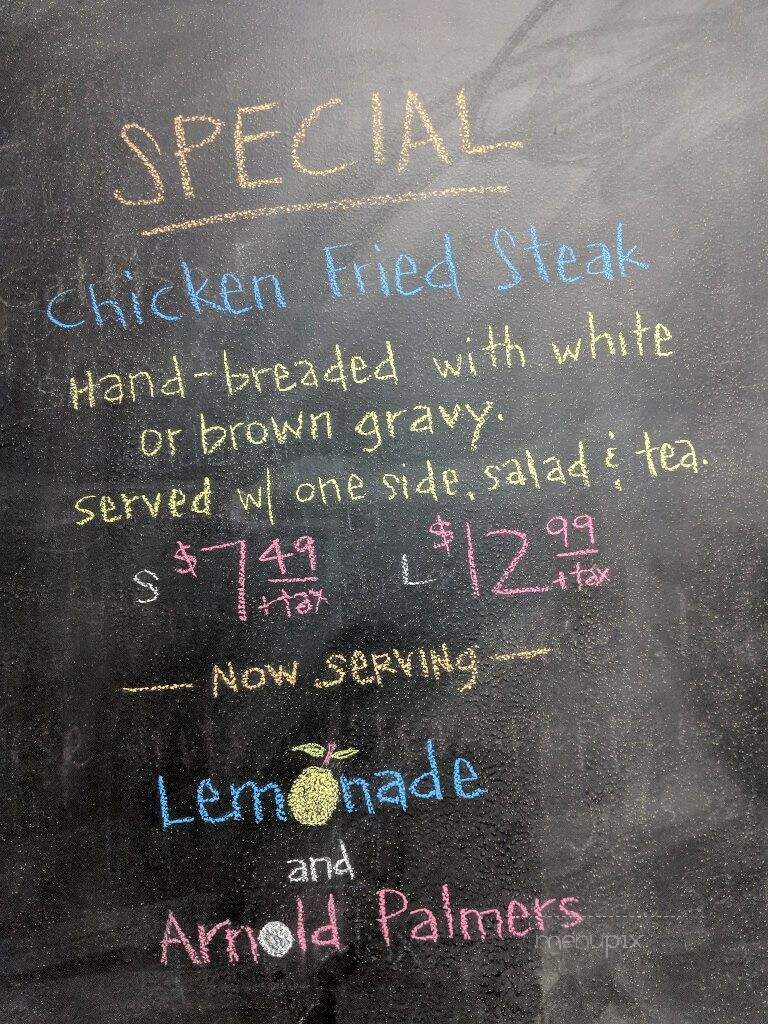 SPECIAL
Chicken Fried Steak
Hand-breaded with white
or brown gravy.
served w/ one side, salad & tea.
S $7 49 +tax L $12 99 +tax
— NOW SERVING —
Lemonade
and
Arnold Palmers
menupix